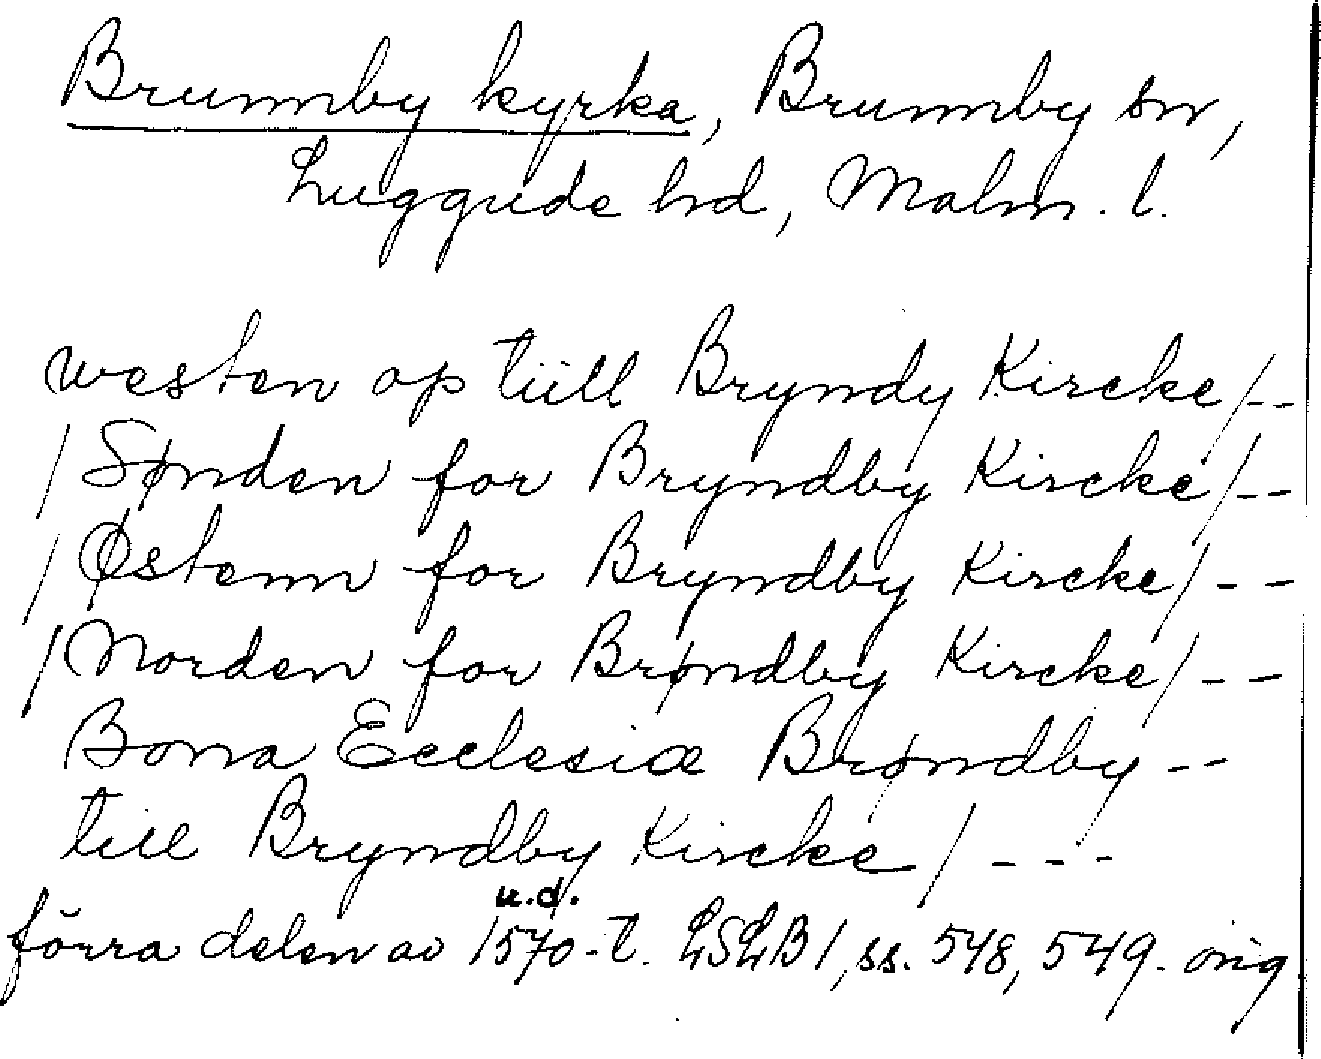 Brunnby kyrka, Brunnby sn,
Luggude hd, Malm. l.
westen op tiill Bryndy Kircke/--
/Sønden for Bryndby Kircke/--
/Østenn for Bryndby Kircke/--
/Norden for Brøndby Kircke/--
Bona Ecclesiæ Brøndby--
till Bryndby Kircke/---
u.d.
förra delen av 1570-t. LSLB1, ss. 548, 549. orig